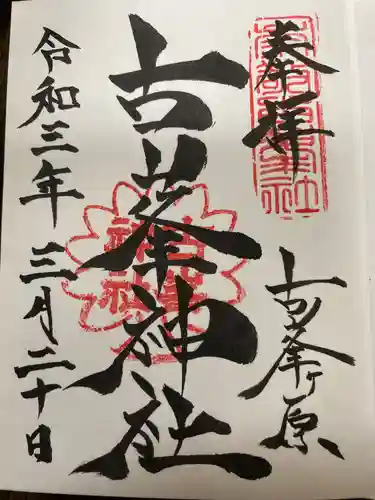 奉拝
古峯ヶ原
古峯神社
令和三年三月二十日